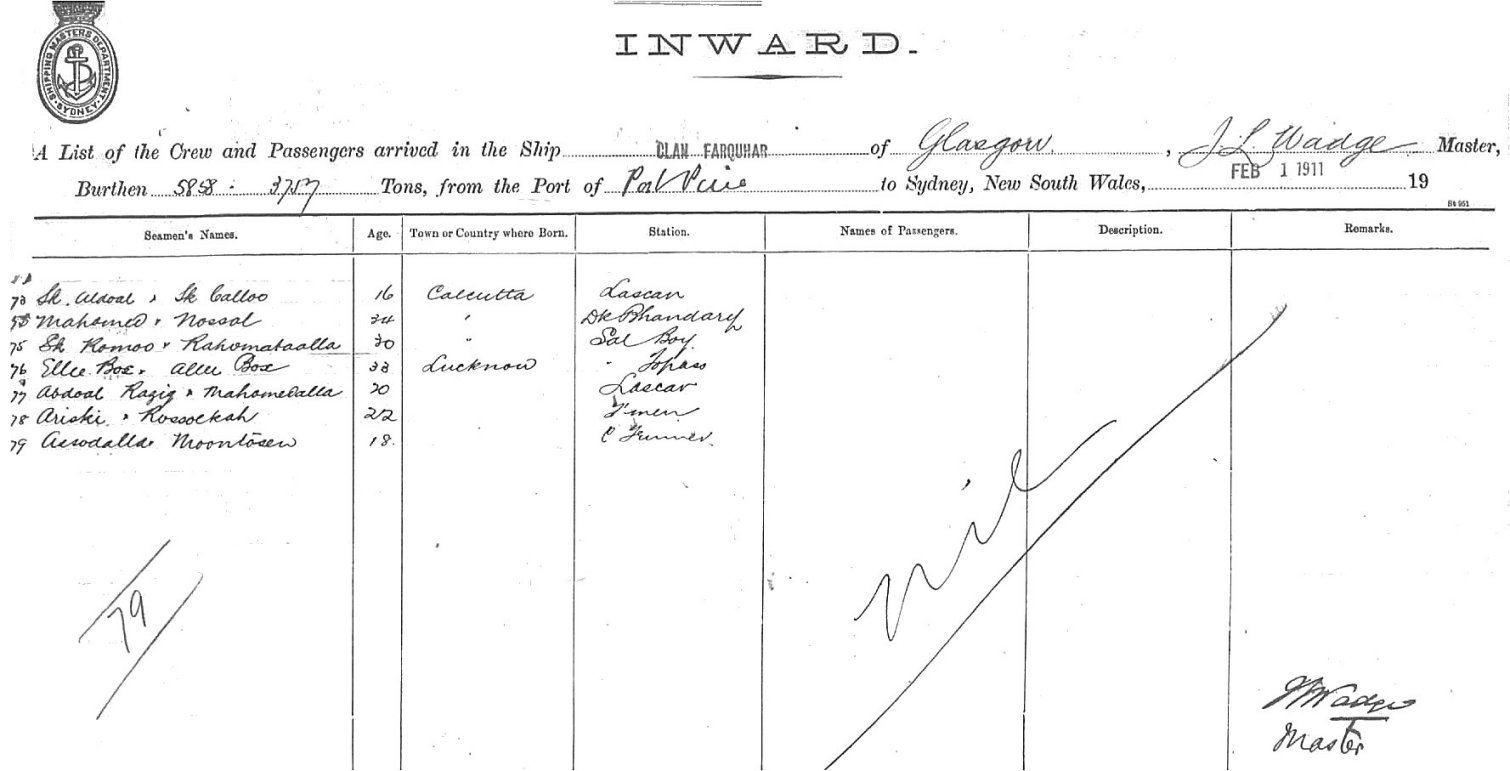 SHIPPING MASTERS DEPARTMENT. SYDNEY.
INWARD.
A List of the Crew and Passengers arrived in the Ship CLAN FARQUHAR of Glasgow, J.L. Wadge Master,
Burthen 5858 - 3757 Tons, from the Port of Port Pirie to Sydney, New South Wales, FEB 1 1911 19
St 951
Seamen's Names. Age. Town or Country where Born. Station. Names of Passengers. Description. Remarks.
73 Sk. Aldoal Sk Calloo 16 Calcutta Lascar
Mahomed Nossol 34 " Dk Bhandary
75 Sk Romoo Rahomataalla 30 " Sal Boy
76 Ellie Box Allee Box 33 Lucknow " Topass
77 Abdoal Razig Mahomedalla 20 Lascar
78 Ariski Rossockah 22 F'men
79 Aesodalla Moontosen 18. C
nil
79
Wadge
Master